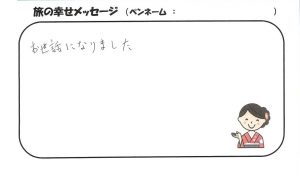 旅の幸せメッセージ（ペンネーム：　　　　　　　　）
お世話になりました